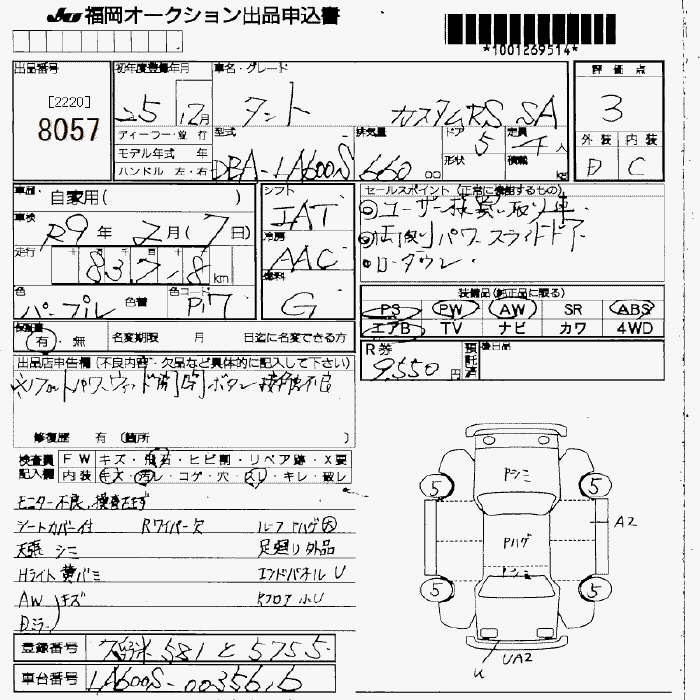 JU 福岡オークション出品申込書
*1001269514*
出品番号 初年度登録年月 車名・グレード 評価点
[2220]
8057
25 12月 タント カスタムRS SA 3
ディーラー・並行 型式 排気量 ドア 5 定員 4人 外装 内装
モデル年式 年 形状 積載 kg D C
ハンドル 左・右 DBA-LA600S 660 cc
車歴 自家用( )
シフト セールスポイント(正常に機能するもの)
車検 R9年2月(7日) IAT ◎ユーザー様買い取り車
冷房 ◎両側パワースライドドア
走行 83,718km AAC ・ローダウン
燃料
色 パープル 色替 色コード P17 G
装備品(純正品に限る)
PS PW AW SR ABS
エアB TV ナビ カワ 4WD
保証書 有・無 名変期限 月 日迄に名変できる方
R券 9,550円 預託済 後日品
出品店申告欄(不良内容・欠品など具体的に記入して下さい)
修復歴 有(箇所 )
検査員 FW キズ・飛石・ヒビ割・リペア跡・X要
記入欄 内装 キズ・汚レ・コゲ・穴・スレ・キレ・破レ
モニター不良、検査出ず
シートカバー付 Rワイパー欠 ルーフ ハゲ大
天張シミ 足廻り外品
Hライト黄バミ エンドパネルU
AW キズ Rフロア小U
Dミラー
5 Pシミ 5
A2
Pハゲ
Pシミ
5 5
U UA2
登録番号 581 と 5755
車台番号 LA600S-0035616